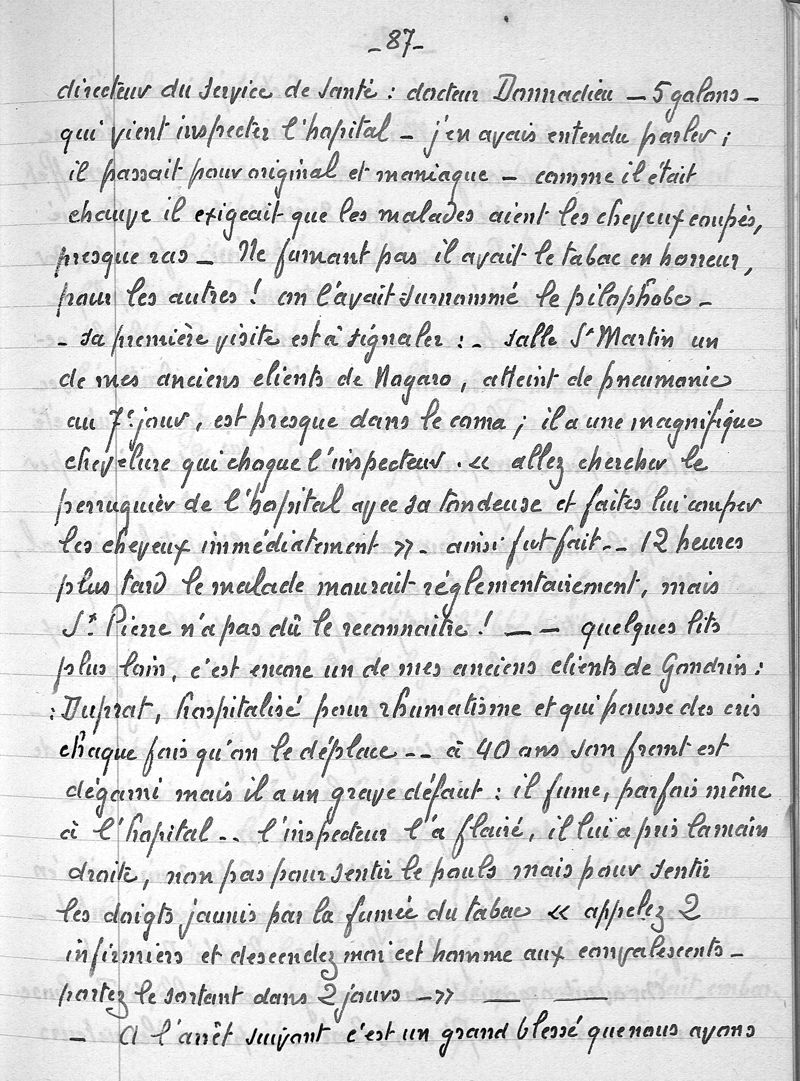 _ 87 _
directeur du service de santé : docteur Donnadieu — 5 galons —
qui vient inspecter l'hopital — j'en avais entendu parler ;
il passait pour original et maniaque — comme il était
chauve il exigeait que les malades aient les cheveux coupés,
presque ras — Ne fumant pas il avait le tabac en horreur,
pour les autres ! on l'avait surnommé le pilophobe —
- sa première visite est à signaler : - salle St Martin un
de mes anciens clients de Nogaro, atteint de pneumonie
au 7e jour, est presque dans le coma ; il a une magnifique
chevelure qui choque l'inspecteur. « allez chercher le
perruquier de l'hopital avec sa tondeuse et faites lui couper
les cheveux immédiatement ». ainsi fut fait -- 12 heures
plus tard le malade mourait réglementairement, mais
St. Pierre n'a pas dû le reconnaitre ! — — quelques lits
plus loin, c'est encore un de mes anciens clients de Gondrin :
: Duprat, hospitalisé pour rhumatisme et qui pousse des cris
chaque fois qu'on le déplace -- à 40 ans son front est
dégarni mais il a un grave défaut : il fume, parfois même
à l'hopital -- l'inspecteur l'a flairé, il lui a pris la main
droite, non pas pour sentir le pouls mais pour sentir
les doigts jaunis par la fumée du tabac « appelez 2
infirmiers et descendez moi cet homme aux convalescents —
portez le sortant dans 2 jours — » — —
— A l'arrêt suivant c'est un grand blessé que nous avons